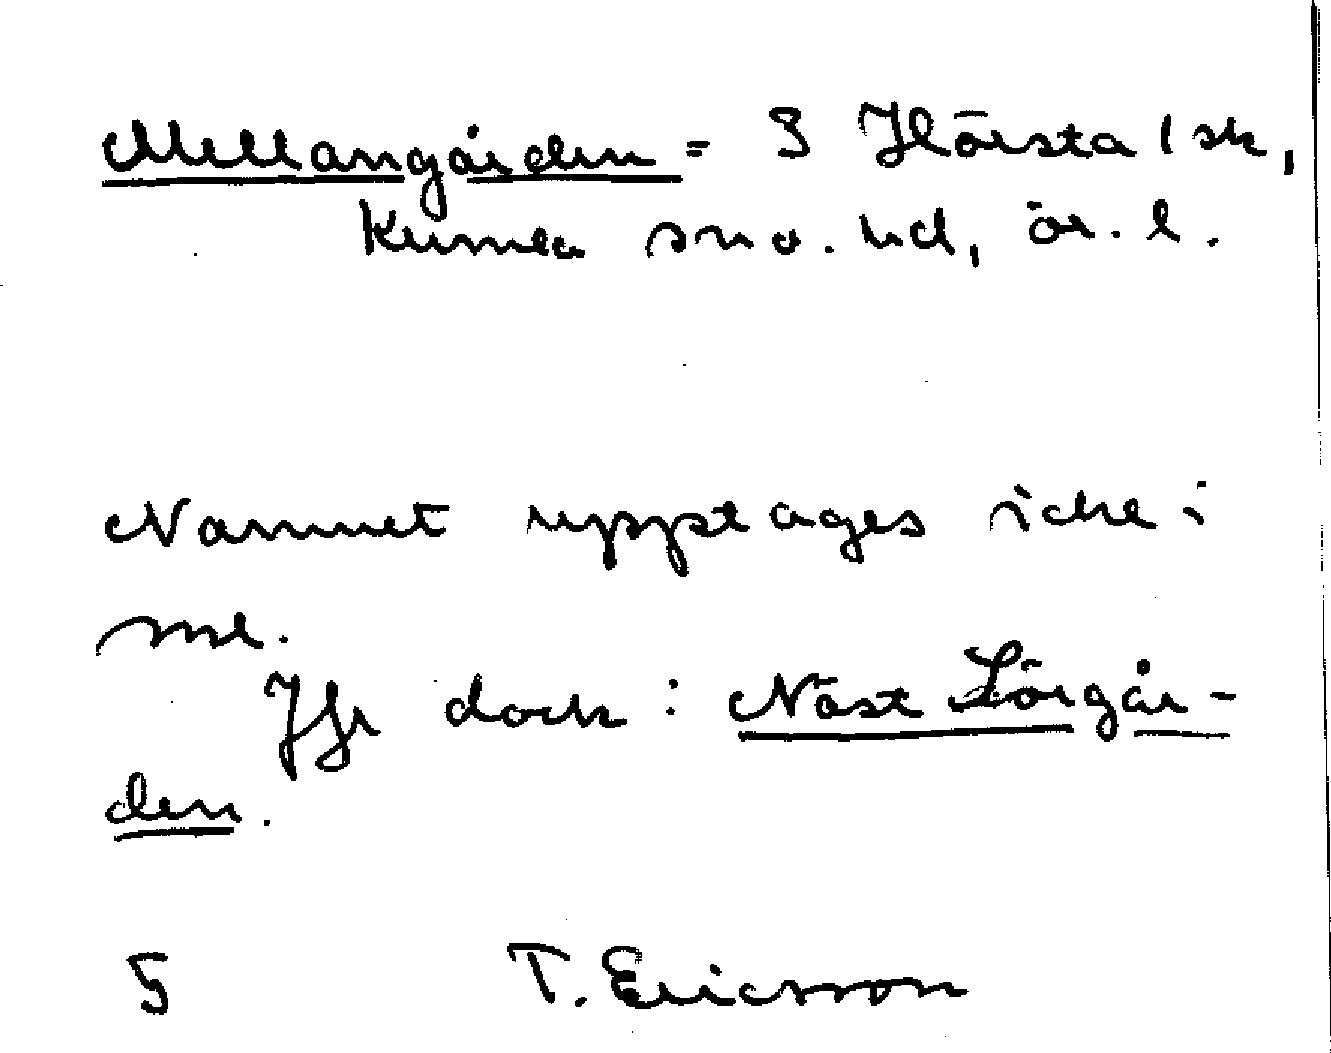 Mellangården = S Hörsta 1 sk,
Kumla sn o. hd, ör. l.
Namnet upptages icke i
ml.
Jfr dock: Näst Sörgår-
den.
5 T. Ericsson